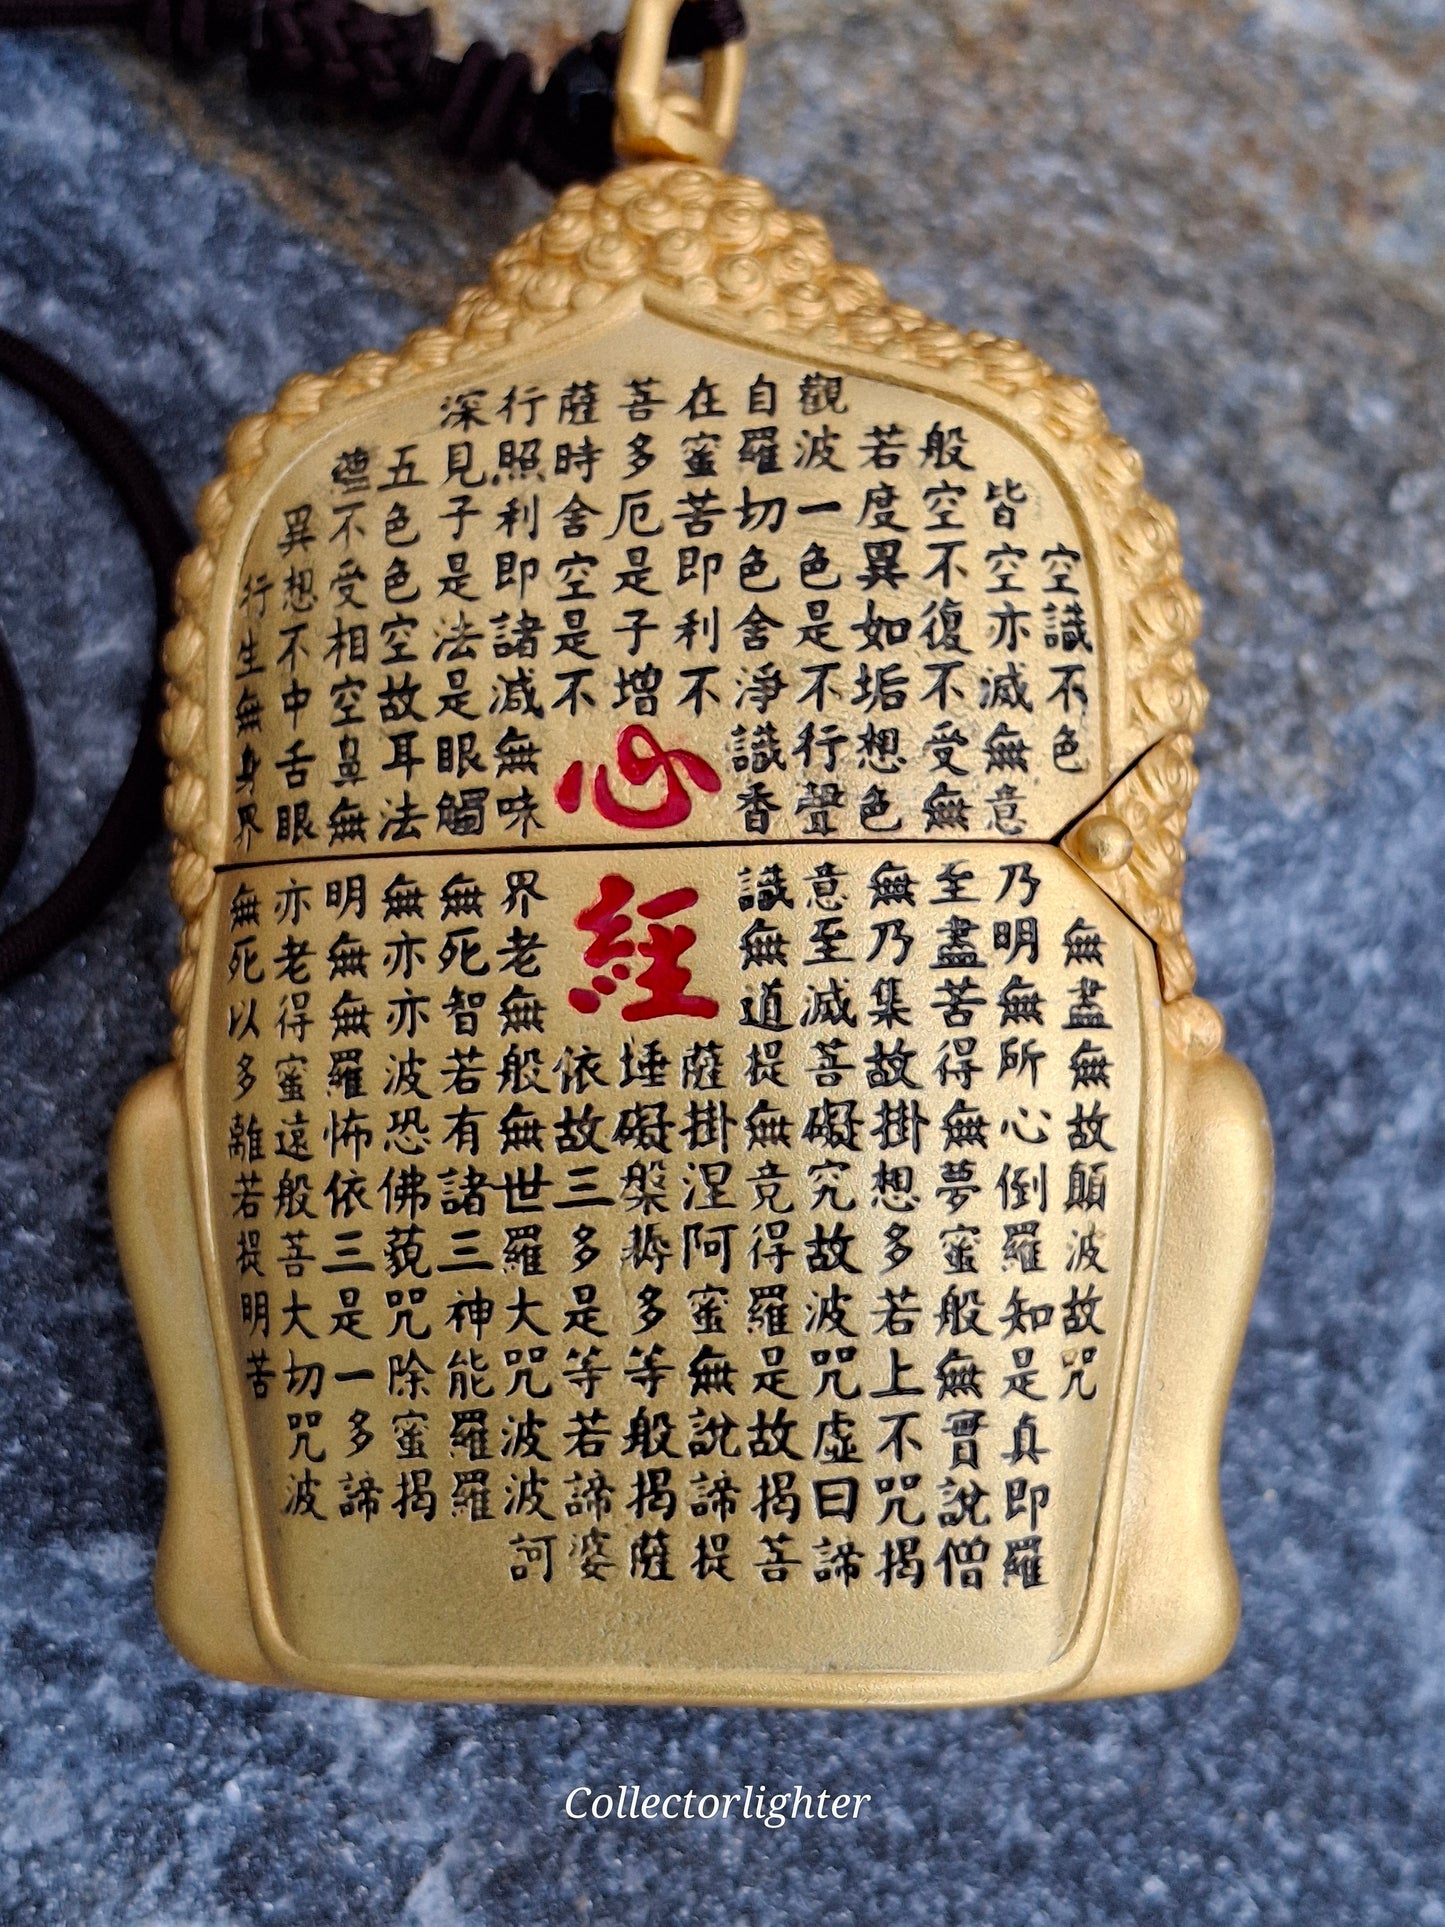 觀自在菩薩行深
般若波羅蜜多時照見五蘊
皆空度一切苦厄舍利子色不異
空空不異色色即是空即是色受想行
識亦復如是舍利子是諸法空相不生
不滅不垢不淨不增不減是故空中無
色無受想行識無眼耳鼻舌身
意無色聲香味觸法無眼界
心經
乃至無意識界無無明亦無
無明盡乃至無老死亦無老死
盡無苦集滅道無智亦無得以
無所得故菩提薩埵依般若波羅蜜多
故心無掛礙無掛礙故無有恐怖遠離
顛倒夢想究竟涅槃三世諸佛依般若
波羅蜜多故得阿耨多羅三藐三菩提
故知般若波羅蜜多是大神咒是大明
咒是無上咒是無等等咒能除一切苦
真實不虛故說般若波羅蜜多咒
即說咒曰揭諦揭諦波羅揭諦波
羅僧揭諦菩提薩婆訶
Collectorlighter